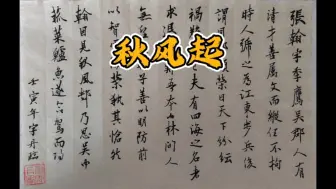 秋风起
張翰字季鷹吳郡人有
清才善屬文而縱任不拘
時人號之為江東步兵後
謂榮曰天下紛紜
禍夫有四海之名者
求吾本山林間人
無子善以明防前
以智榮執其愴然
翰因見秋風起乃思吳中
菰菜鱸魚遂命駕而歸
壬寅年